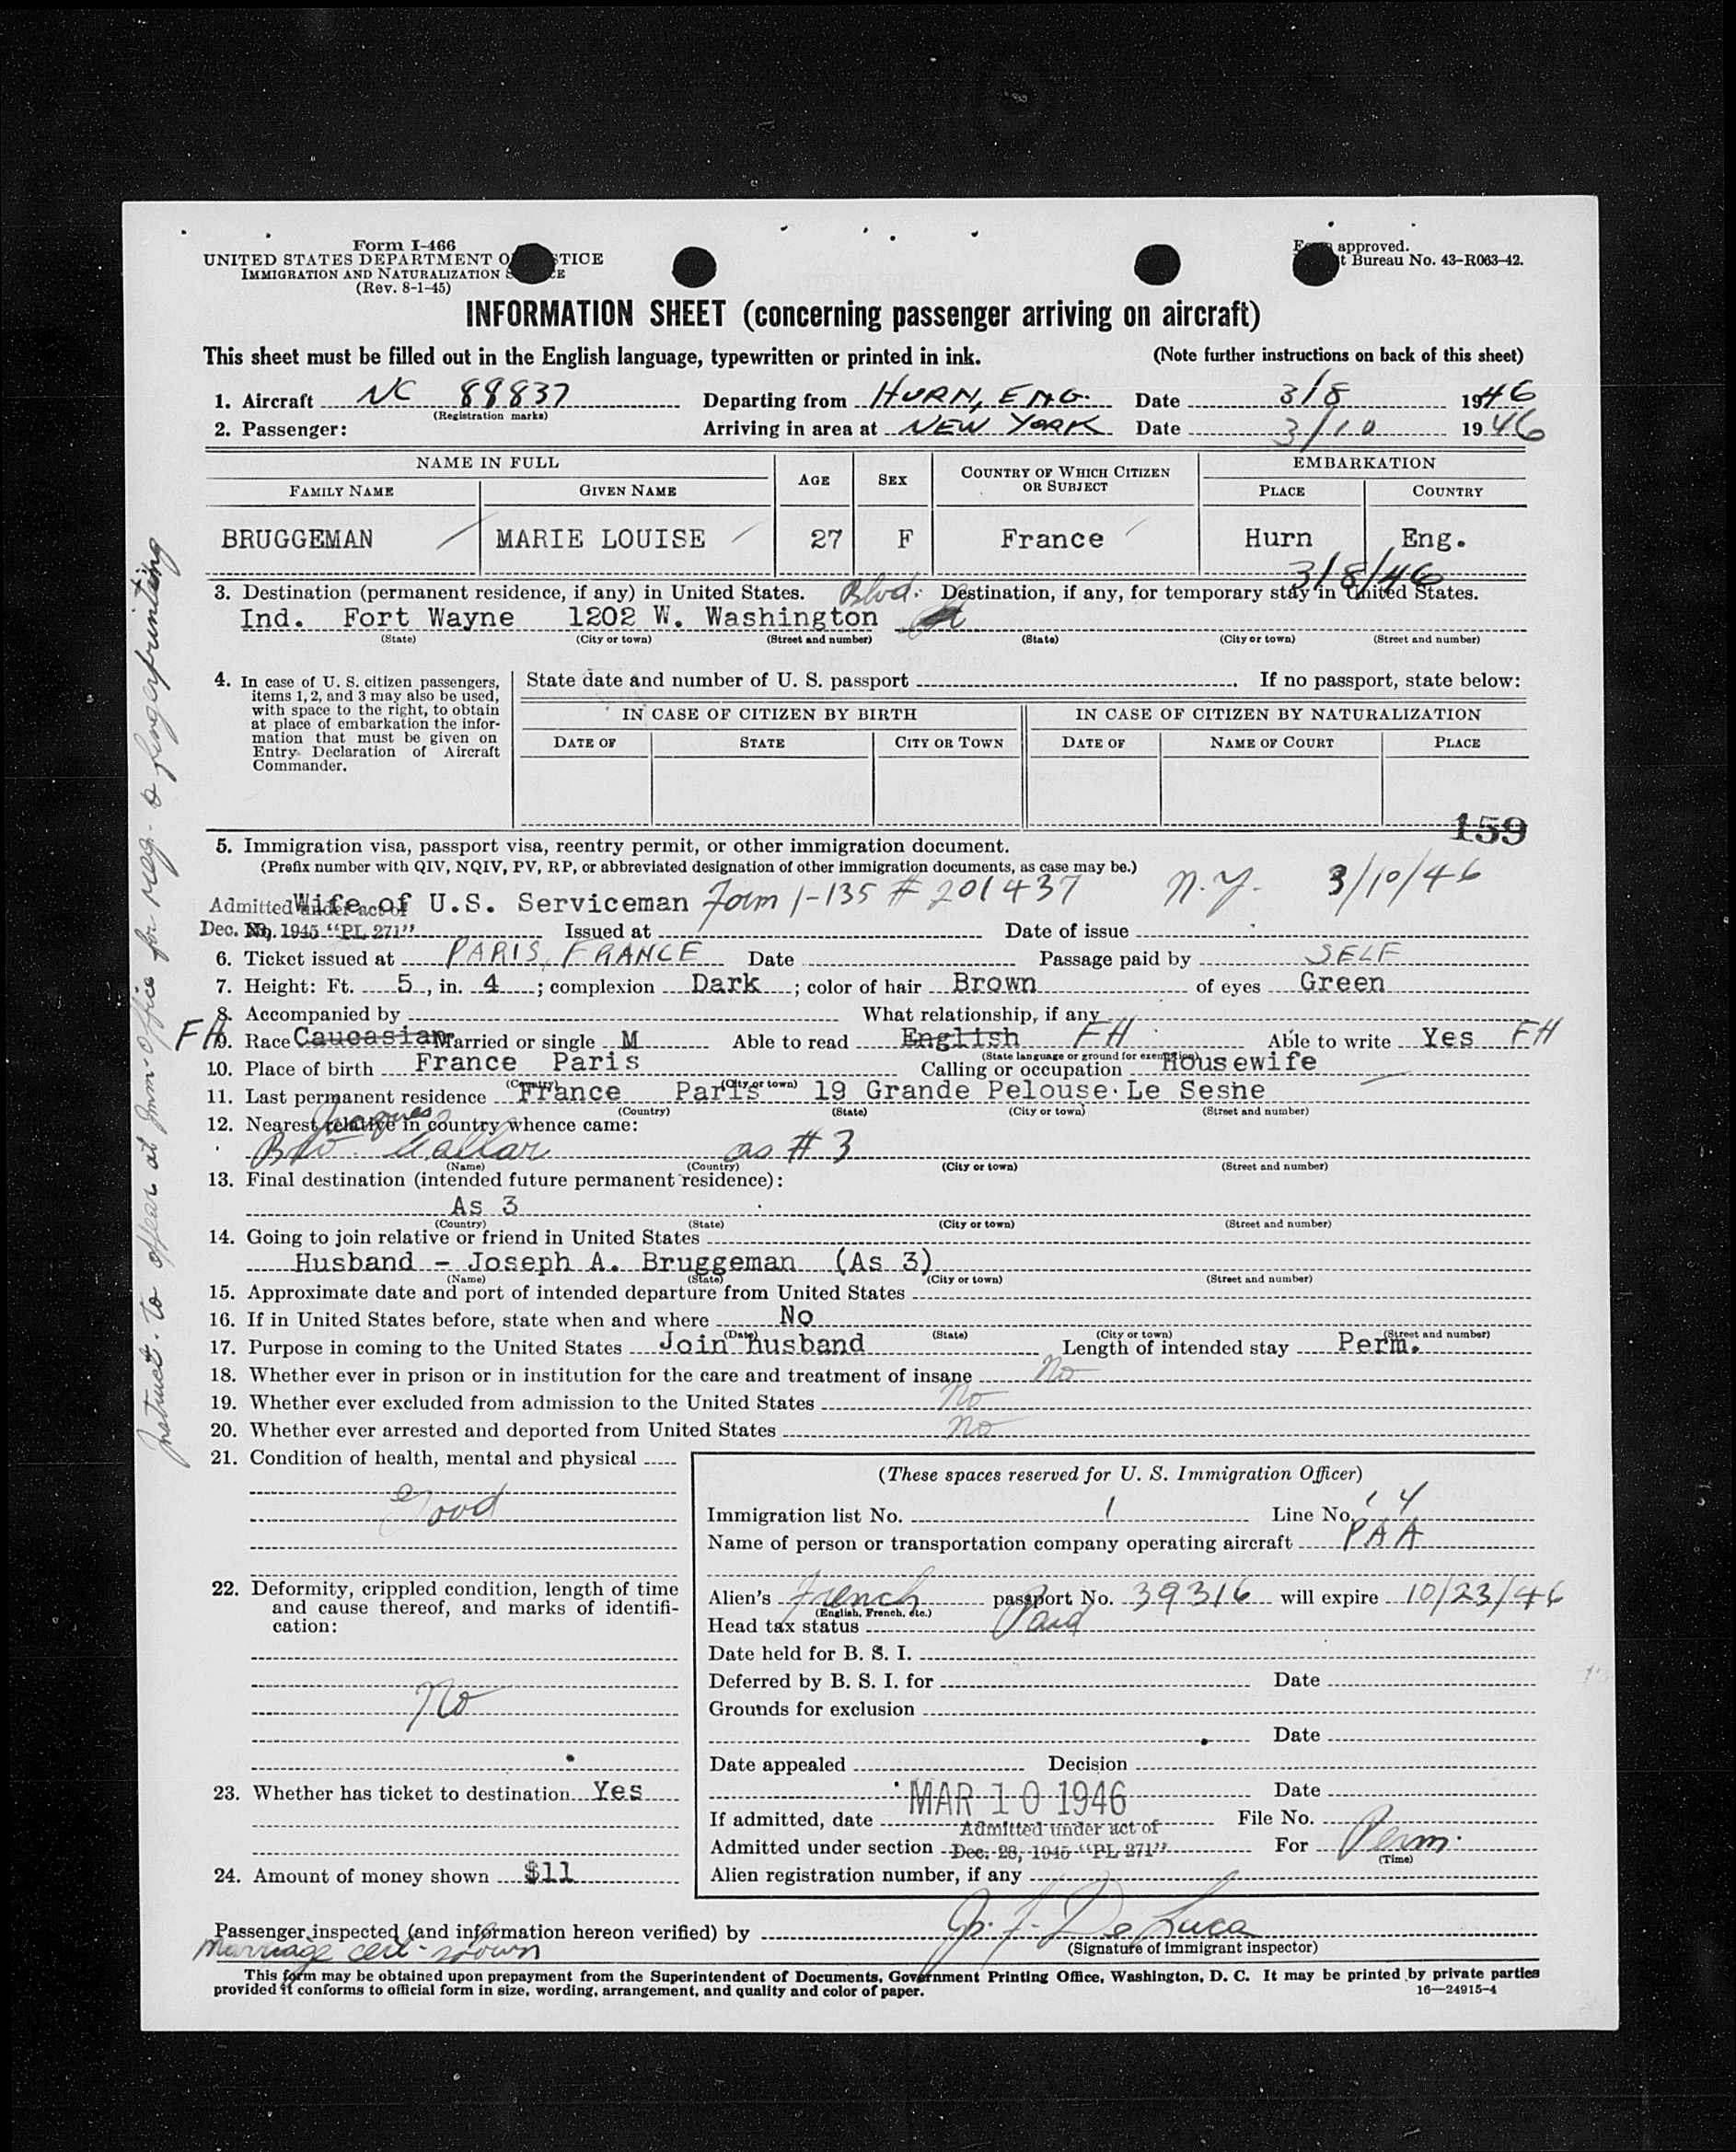 Form I-466
UNITED STATES DEPARTMENT O STICE
IMMIGRATION AND NATURALIZATION S E
(Rev. 8-1-45)
approved.
t Bureau No. 43-R063-42.
INFORMATION SHEET (concerning passenger arriving on aircraft)
This sheet must be filled out in the English language, typewritten or printed in ink. (Note further instructions on back of this sheet)
1. Aircraft NC 88837 Departing from HURN, ENG. Date 3/8 1946
(Registration marks)
2. Passenger: Arriving in area at NEW YORK Date 3/10 1946
NAME IN FULL AGE SEX COUNTRY OF WHICH CITIZEN OR SUBJECT EMBARKATION
FAMILY NAME GIVEN NAME PLACE COUNTRY
BRUGGEMAN MARIE LOUISE 27 F France Hurn Eng.
3/8/46
3. Destination (permanent residence, if any) in United States. Blvd. Destination, if any, for temporary stay in United States.
Ind. Fort Wayne 1202 W. Washington
(State) (City or town) (Street and number) (State) (City or town) (Street and number)
4. In case of U. S. citizen passengers, items 1, 2, and 3 may also be used, with space to the right, to obtain at place of embarkation the information that must be given on Entry Declaration of Aircraft Commander.
State date and number of U. S. passport If no passport, state below:
IN CASE OF CITIZEN BY BIRTH IN CASE OF CITIZEN BY NATURALIZATION
DATE OF STATE CITY OR TOWN DATE OF NAME OF COURT PLACE
159
5. Immigration visa, passport visa, reentry permit, or other immigration document.
(Prefix number with QIV, NQIV, PV, RP, or abbreviated designation of other immigration documents, as case may be.)
Admitted under act of Wife of U.S. Serviceman Form 1-135 # 201437 N.Y. 3/10/46
Dec. 28, 1945 "PL 271" No. Issued at Date of issue
6. Ticket issued at PARIS, FRANCE Date Passage paid by SELF
7. Height: Ft. 5, in. 4; complexion Dark; color of hair Brown of eyes Green
8. Accompanied by What relationship, if any
FH 9. Race Caucasian Married or single M Able to read English FH Able to write Yes FH
(State language or ground for exemption)
10. Place of birth France Paris Calling or occupation Housewife
(Country) (City or town)
11. Last permanent residence France Paris 19 Grande Pelouse Le Sesne
(Country) (State) (City or town) (Street and number)
12. Nearest relative in country whence came:
Bro. Jacques as # 3
(Name) (Country) (City or town) (Street and number)
13. Final destination (intended future permanent residence):
As 3
(Country) (State) (City or town) (Street and number)
14. Going to join relative or friend in United States
Husband - Joseph A. Bruggeman (As 3)
(Name) (State) (City or town) (Street and number)
15. Approximate date and port of intended departure from United States
16. If in United States before, state when and where No
(Date) (State) (City or town) (Street and number)
17. Purpose in coming to the United States Join husband Length of intended stay Perm.
18. Whether ever in prison or in institution for the care and treatment of insane No
19. Whether ever excluded from admission to the United States No
20. Whether ever arrested and deported from United States No
21. Condition of health, mental and physical
Good
22. Deformity, crippled condition, length of time and cause thereof, and marks of identification:
No
23. Whether has ticket to destination Yes
24. Amount of money shown $11
(These spaces reserved for U. S. Immigration Officer)
Immigration list No. 1 Line No. 4
Name of person or transportation company operating aircraft PAA
Alien's French passport No. 39316 will expire 10/23/46
(English, French, etc.)
Head tax status Paid
Date held for B. S. I.
Deferred by B. S. I. for Date
Grounds for exclusion
Date
Date appealed Decision
Date
If admitted, date MAR 10 1946 File No.
Admitted under section Admitted under act of Dec. 28, 1945 "PL 271" For Perm.
(Time)
Alien registration number, if any
Passenger inspected (and information hereon verified) by De Luca
Marriage cert. shown (Signature of immigrant inspector)
This form may be obtained upon prepayment from the Superintendent of Documents, Government Printing Office, Washington, D. C. It may be printed by private parties
provided it conforms to official form in size, wording, arrangement, and quality and color of paper. 16—24915-4
Instruct. to appear at Imm. Office for reg. & fingerprinting